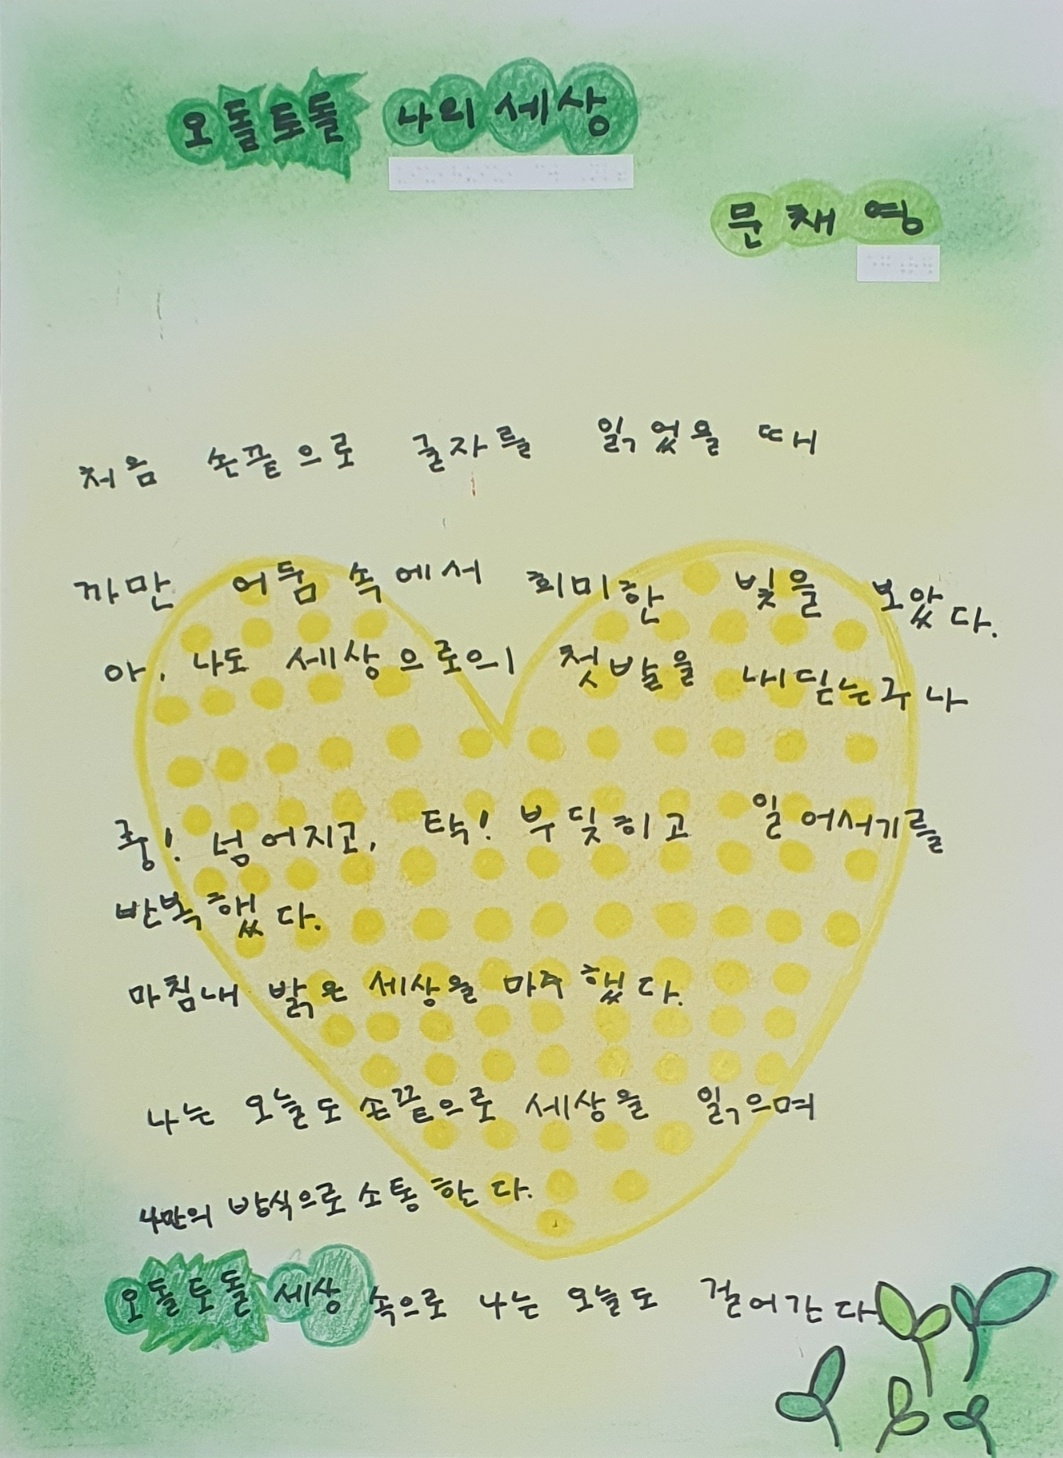 오돌토돌 나의 세상
문채영
처음 손끝으로 글자를 읽었을 때
까만 어둠 속에서 희미한 빛을 보았다.
아, 나도 세상으로의 첫발을 내딛는구나
쿵! 넘어지고, 탁! 부딪히고 일어서기를
반복했다.
마침내 밝은 세상을 마주했다.
나는 오늘도 손끝으로 세상을 읽으며
나만의 방식으로 소통한다.
오돌토돌 세상 속으로 나는 오늘도 걸어간다.